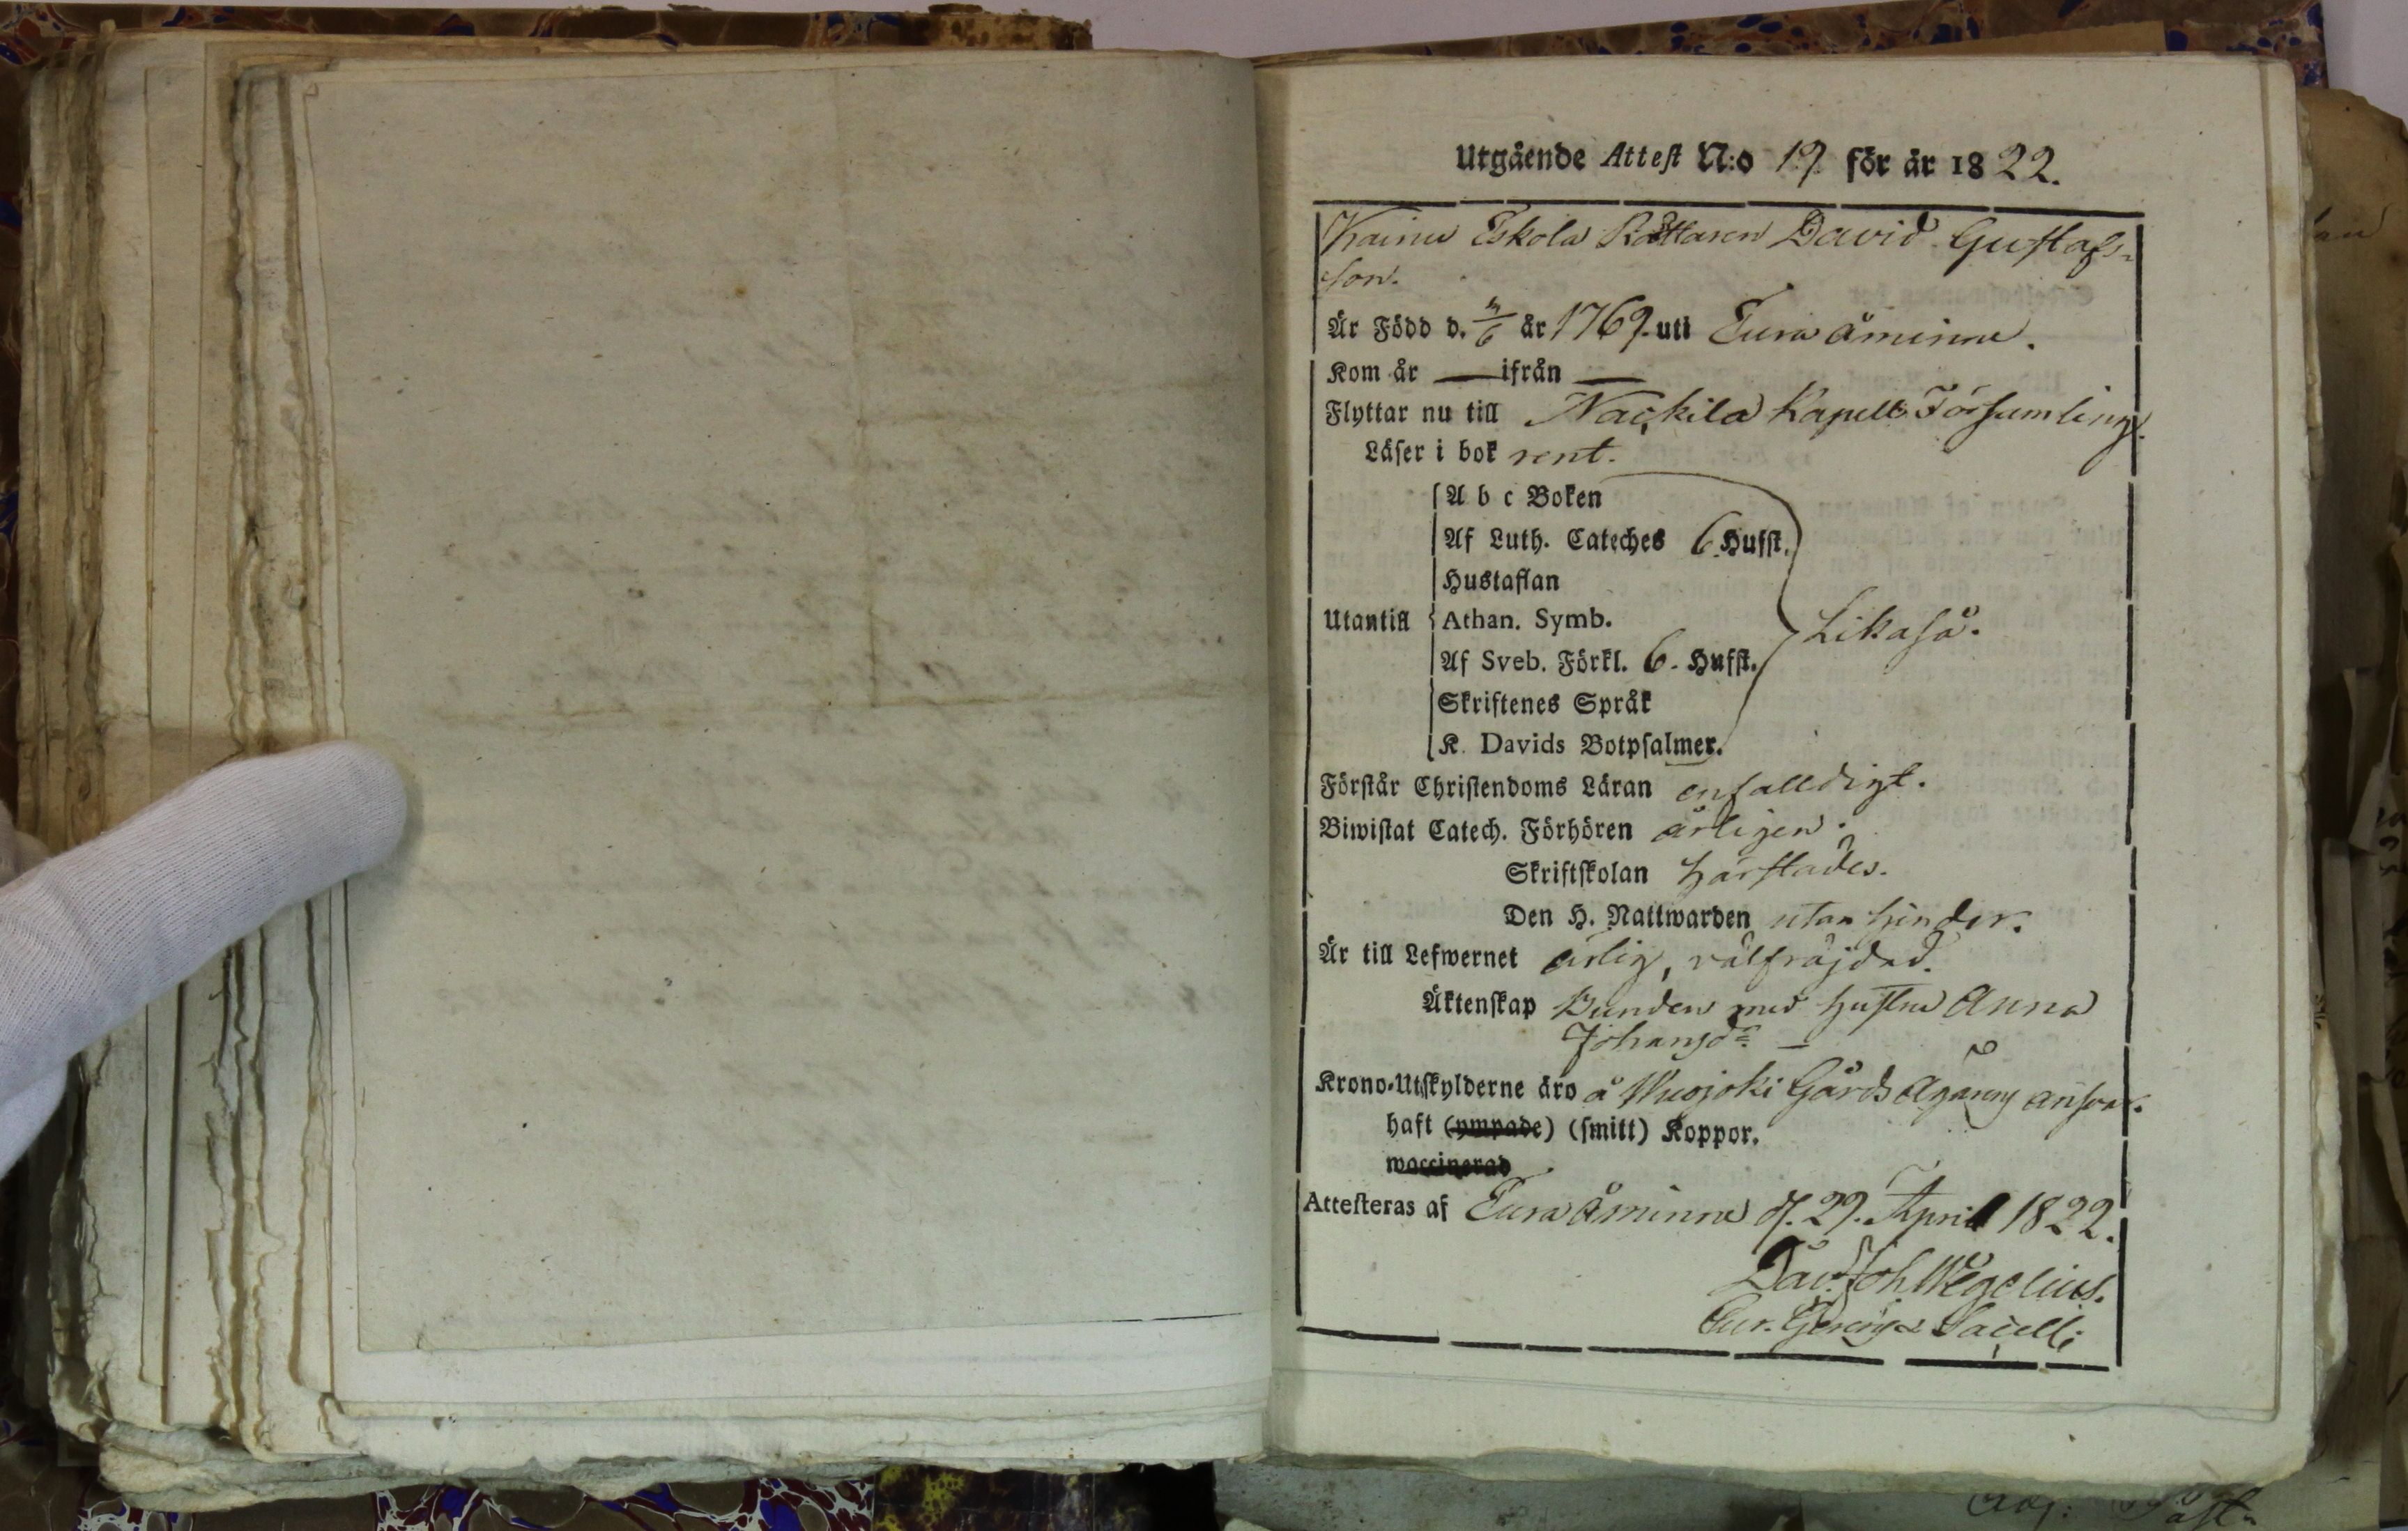 Utgående Attest N:o 19 för år 1822.
Kainu Eskola Rättaren David Gustafs-
son.
Är Född d. /6 år 1769. uti Eura åminne.
Kom år — ifrån —
Flyttar nu till Nackila Kapells Församling.
Läser i bok rent.
A b c Boken
Af Luth. Cateches 6 Hufst.
Hustaflan
Utantill Athan. Symb. Likaså.
Af Sveb. Förkl. 6. Hufst.
Skriftenes Språk
K. Davids Botpsalmer.
Förstår Christendoms Läran enfalldigt.
Biwistat Catech. Förhören årligen.
Skriftskolan härstädes.
Den H. Nattwarden utan hinder.
Är till Lefwernet ärlig, välfräjdad.
Äktenskap Bunden med hustru Anna
Johansdr. —
Krono-Utskylderne äro å Wuojoki Gårds ägarens ansvar.
haft (ympade) (smitt) Koppor.
waccinerad
Attesteras af Eura Åminne d. 29. April 1822.
Dav. Joh Wegelius.
Sacelli